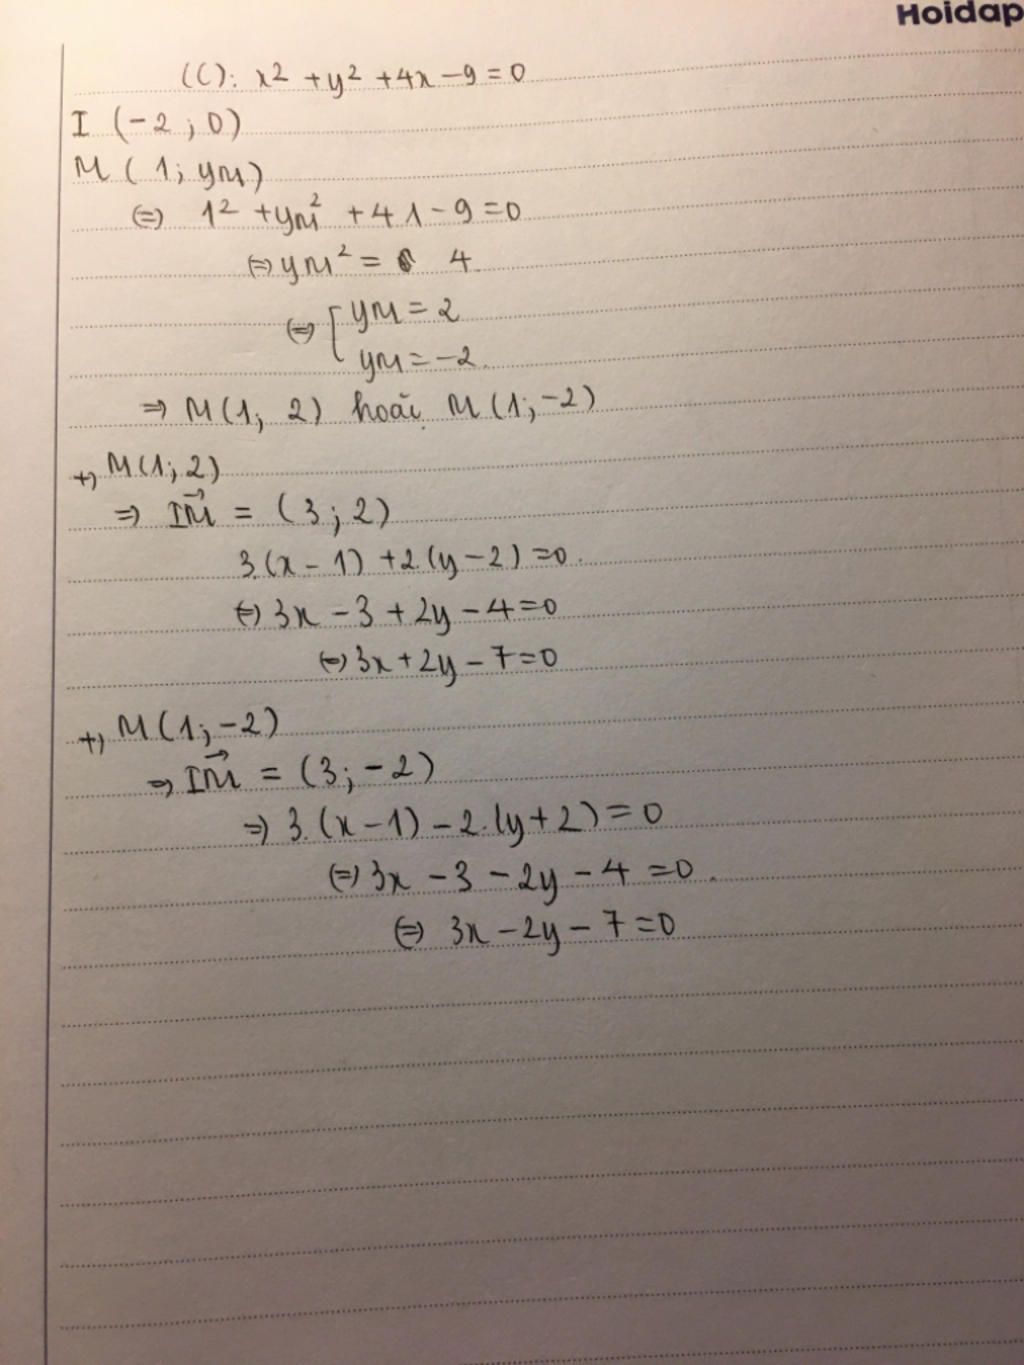 Hoidap
(C): x² + y² + 4x - 9 = 0
I (-2 ; 0)
M ( 1 ; yM)
(=) 1² + yM² + 4 1 - 9 = 0
(=) yM² = 4
(=) [ yM = 2
yM = -2
=> M(1; 2) hoặc M(1; -2)
+, M(1; 2)
=> IM→ = (3 ; 2)
3.(x - 1) + 2.(y - 2) = 0.
(=) 3x - 3 + 2y - 4 = 0
(=) 3x + 2y - 7 = 0
+, M(1; -2)
=> IM→ = (3; -2)
=> 3.(x - 1) - 2.(y + 2) = 0
(=) 3x - 3 - 2y - 4 = 0.
(=) 3x - 2y - 7 = 0